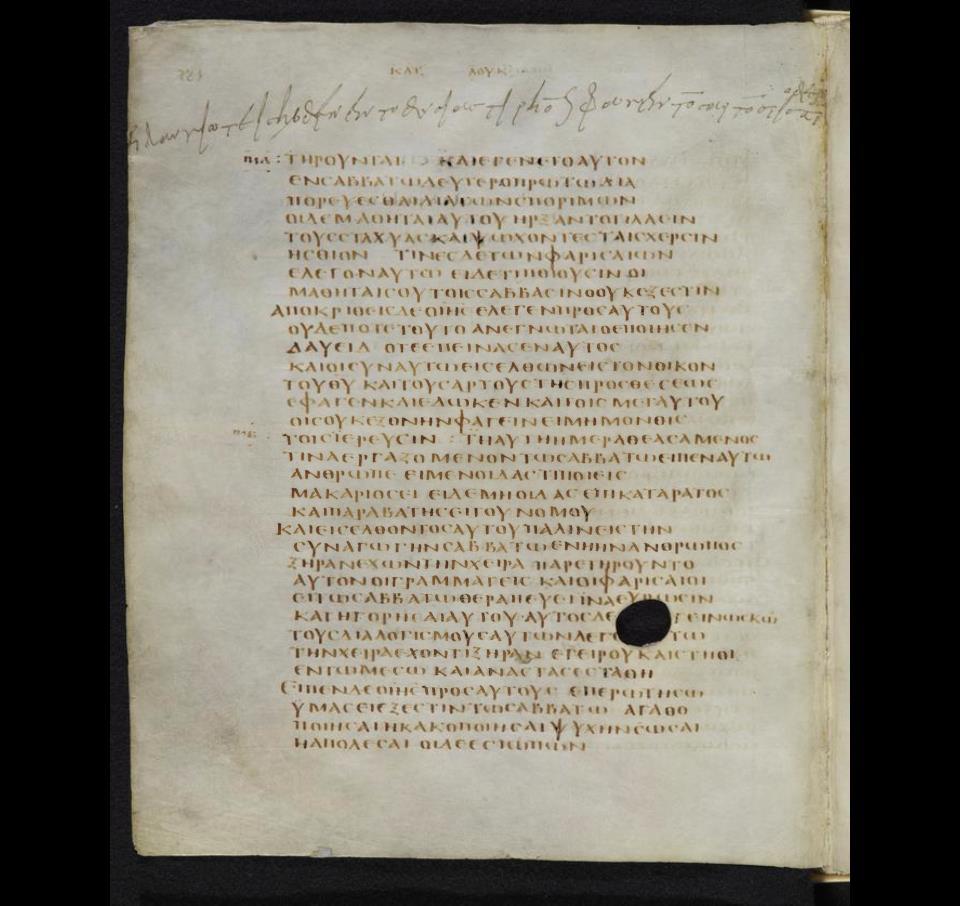 ΚΑΤ ΛΟΥΚ
ΤΗΡΟΥΝΤΑΙ ΚΑΙΕΓΕΝΕΤΟΑΥΤΟΝ
ΕΝϹΑΒΒΑΤΩΔΕΥΤΕΡΟΠΡΩΤΩΔΙΑ
ΠΟΡΕΥΕϹΘΑΙΔΙΑΤΩΝϹΠΟΡΙΜΩΝ
ΟΙΔΕΜΑΘΗΤΑΙΑΥΤΟΥΗΡΞΑΝΤΟΤΙΛΛΕΙΝ
ΤΟΥϹϹΤΑΧΥΑϹΚΑΙΨΩΧΟΝΤΕϹΤΑΙϹΧΕΡϹΙΝ
ΗϹΘΙΟΝ ΤΙΝΕϹΔΕΤΩΝΦΑΡΙϹΑΙΩΝ
ΕΛΕΓΟΝΑΥΤΩ ΕΙΔΕΤΙΠΟΙΟΥϹΙΝΟΙ
ΜΑΘΗΤΑΙϹΟΥΤΟΙϹϹΑΒΒΑϹΙΝΟΟΥΚΕΞΕϹΤΙΝ
ΑΠΟΚΡΙΘΕΙϹΔΕΟΙΗϹ ΕΛΕΓΕΝΠΡΟϹΑΥΤΟΥϹ
ΟΥΔΕΠΟΤΕΤΟΥΤΟ ΑΝΕΓΝΩΤΑΙΟΕΠΟΙΗϹΕΝ
ΔΑΥΕΙΔ ΟΤΕΕΠΕΙΝΑϹΕΝΑΥΤΟϹ
ΚΑΙΟΙϹΥΝΑΥΤΩΕΙϹΕΛΘΩΝΕΙϹΤΟΝΟΙΚΟΝ
ΤΟΥΘΥ ΚΑΙΤΟΥϹΑΡΤΟΥϹΤΗϹΠΡΟϹΘΕϹΕΩϹ
ΕΦΑΓΕΝΚΑΙΕΔΩΚΕΝ ΚΑΙΤΟΙϹ ΜΕΤΑΥΤΟΥ
ΟΙϹΟΥΚΕΞΟΝΗΝΦΑΓΕΙΝΕΙΜΗΜΟΝΟΙϹ
ΤΟΙϹΙΕΡΕΥϹΙΝ : ΤΗΑΥΤΗΗΜΕΡΑΘΕΑϹΑΜΕΝΟϹ
ΤΙΝΑΕΡΓΑΖΟΜΕΝΟΝΤΩϹΑΒΒΑΤΩΕΙΠΕΝΑΥΤΩ
ΑΝΘΡΩΠΕ ΕΙΜΕΝΟΙΔΑϹΤΙΠΟΙΕΙϹ
ΜΑΚΑΡΙΟϹΕΙ ΕΙΔΕΜΗΟΙΔΑϹ ΕΠΙΚΑΤΑΡΑΤΟϹ
ΚΑΙΠΑΡΑΒΑΤΗϹΕΙΤΟΥΝΟΜΟΥ
ΚΑΙΕΙϹΕΛΘΟΝΤΟϹΑΥΤΟΥΠΑΛΙΝΕΙϹΤΗΝ
ϹΥΝΑΓΩΓΗΝϹΑΒΒΑΤΩ ΕΝΗΗΝΑΝΘΡΩΠΟϹ
ΞΗΡΑΝΕΧΩΝΤΗΝΧΕΙΡΑ ΠΑΡΕΤΗΡΟΥΝΤΟ
ΑΥΤΟΝΟΙΓΡΑΜΜΑΤΕΙϹ ΚΑΙΟΙΦΑΡΙϹΑΙΟΙ
ΕΙΤΩϹΑΒΒΑΤΩΘΕΡΑΠΕΥΕΙΙΝΑΕΥΡΩϹΙΝ
ΚΑΤΗΓΟΡΗϹΑΙΑΥΤΟΥ·ΑΥΤΟϹΔΕ ΓΕΙΝΩϹΚΩ
ΤΟΥϹΔΙΑΛΟΓΙϹΜΟΥϹΑΥΤΩΝΛΕΓ ΤΩ
ΤΗΝΧΕΙΡΑΕΧΟΝΤΙΞΗΡΑΝ ΕΓΕΙΡΟΥΚΑΙϹΤΗΘΙ
ΕΝΤΩΜΕϹΩ ΚΑΙΑΝΑϹΤΑϹΕϹΤΑΘΗ
ΕΙΠΕΝΔΕΟΙΗϹΠΡΟϹΑΥΤΟΥϹ ΕΠΕΡΩΤΗϹΩ
ΥΜΑϹΕΙΕΞΕϹΤΙΝΤΩϹΑΒΒΑΤΩ ΑΓΑΘΟ
ΠΟΙΗϹΑΙΗΚΑΚΟΠΟΙΗϹΑΙΨΥΧΗΝϹΩϹΑΙ
ΗΑΠΟΛΕϹΑΙ ΟΙΔΕΕϹΙΩΠΩΝ